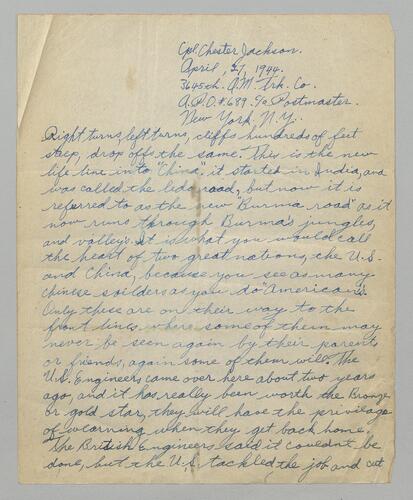 Cpl. Chester Jackson.
April, 27, 1944.
3645th. Q.M. Trk. Co.
A.P.O. #689. c/o Postmaster.
New York, N.Y.
Right turns, left turns, cliffs hundreds of feet
steep, drop offs the same. This is the new
life line into "China." it started in India, and
was called the ledo road, but now it is
refered to as the new "Burma road" as it
now runs through Burma's jungles,
and valleys. It is what you would call
the heart of two great nations, the U.S.
and China, because you see as many
chinese soilders as you do "Americans.
Only these are on their way to the
front lines, where some of them may
never be seen again by their parents
or friends, again some of them will. The
U.S. Engineers came over here about two years
ago, and it has really been worth the Bronze
or gold star, they will have the privileage
of wearning when they get back home.
The British Engineers said it couldn't be
done, but the U.S. tackled the job and cut